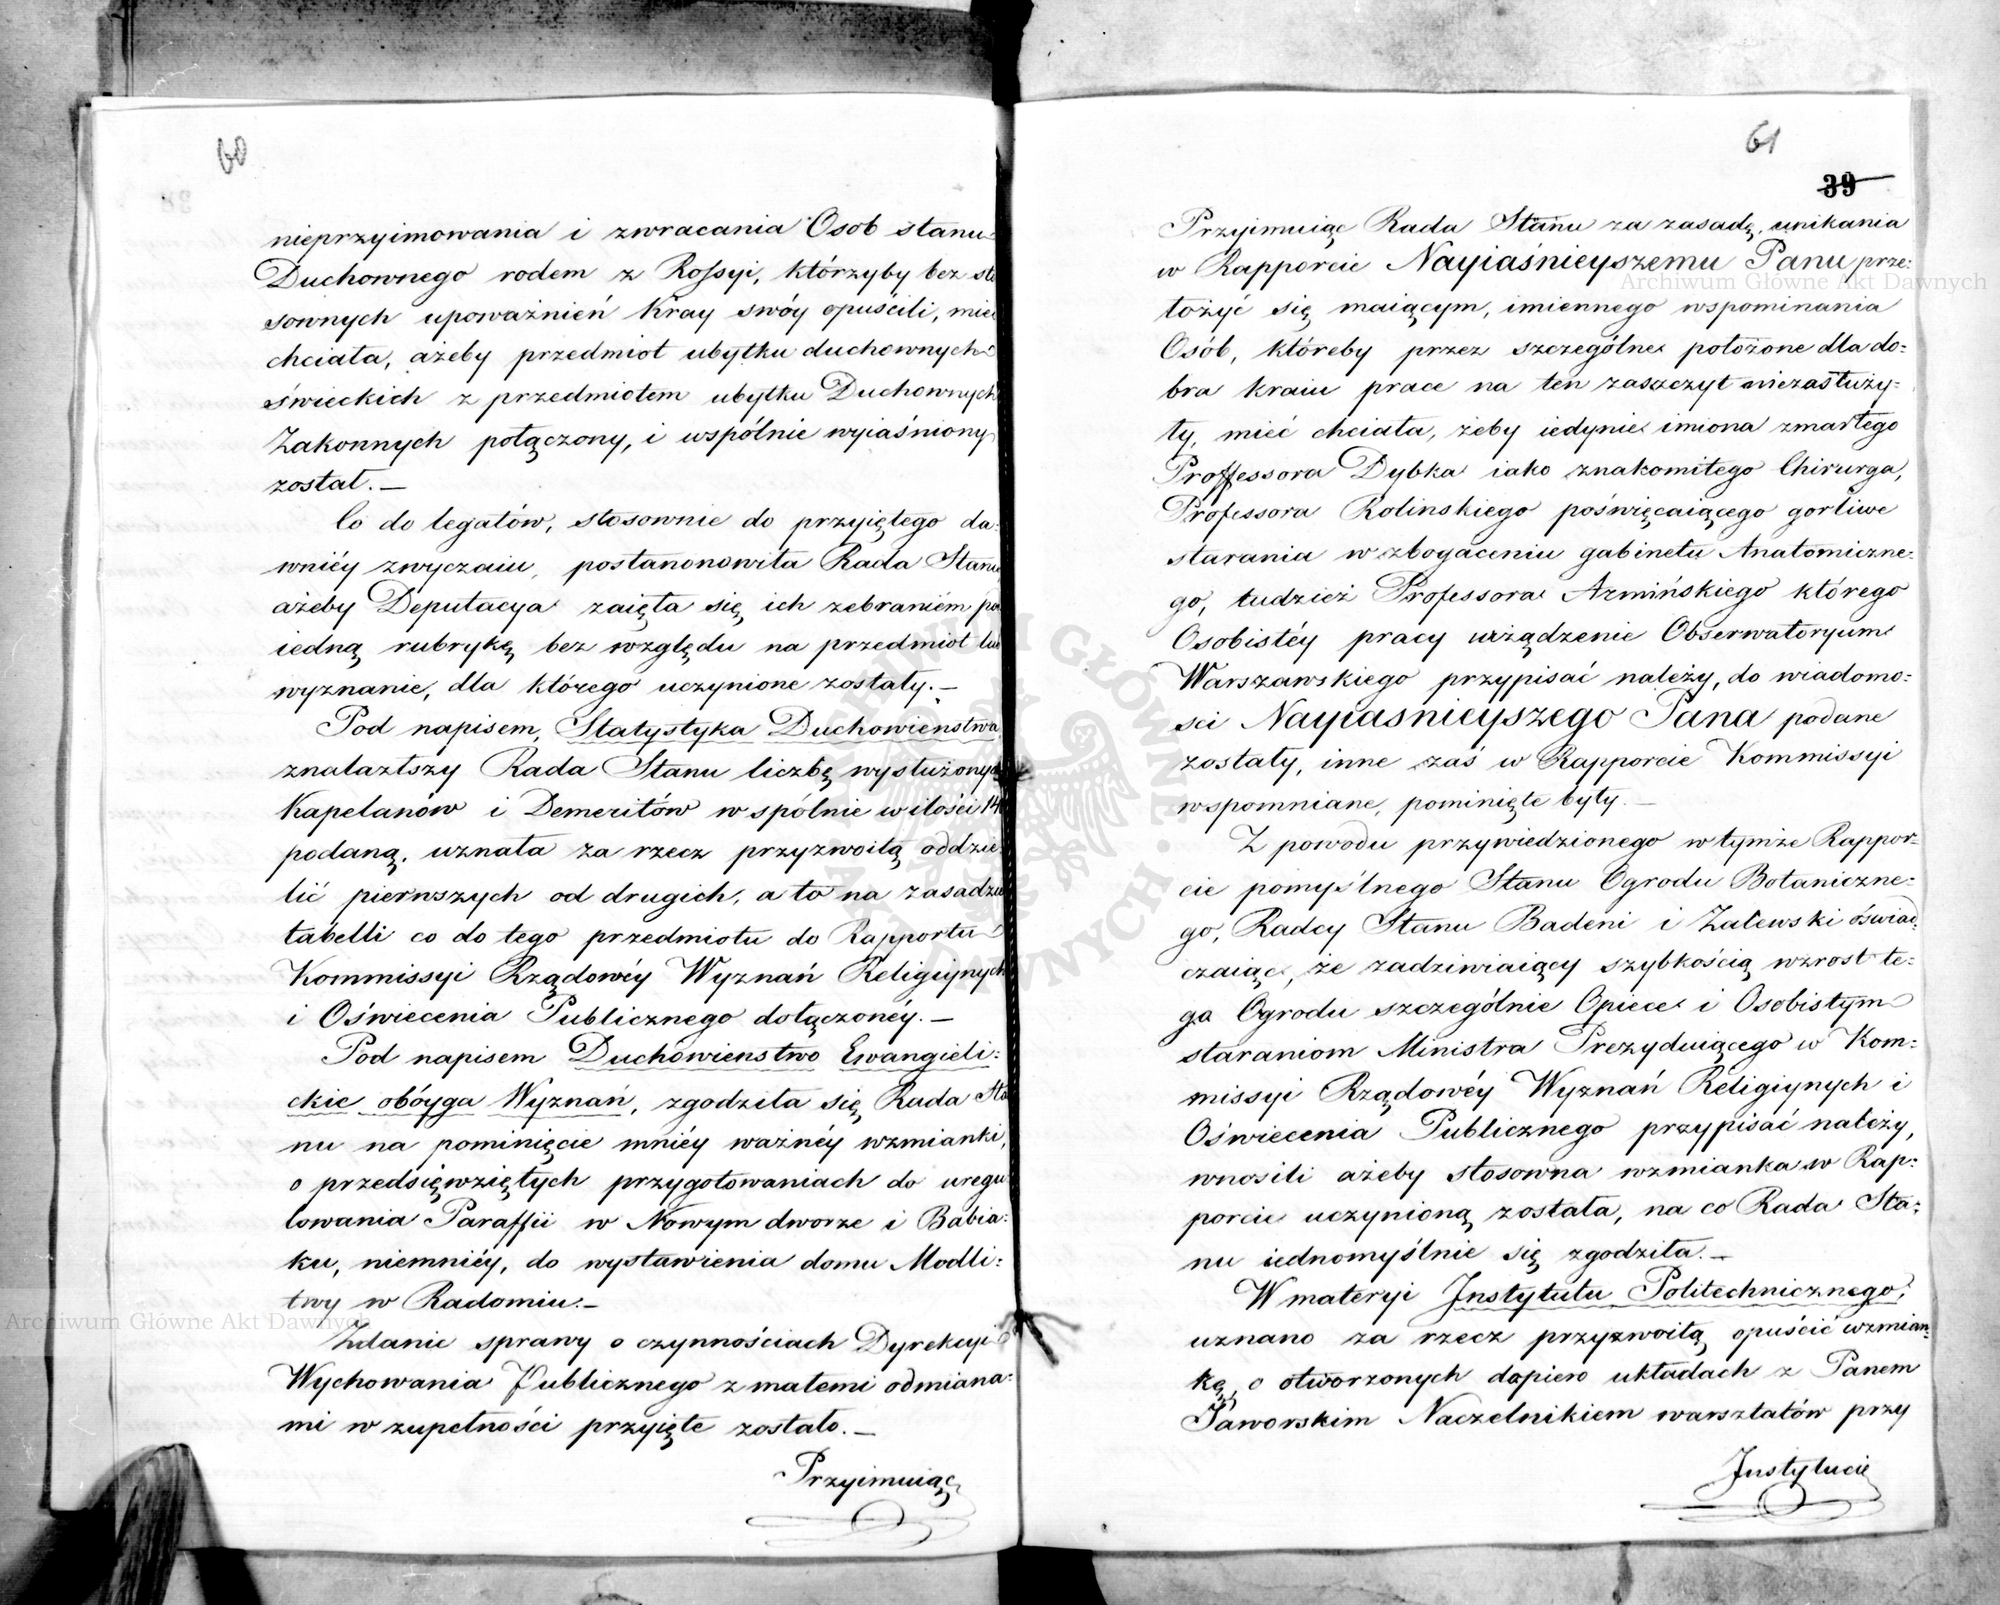 60
nieprzyimowania i zwracania Osob stanu
Duchownego rodem z Rossyi, którzyby bez sto
sownych upoważnień Kray swóy opuścili, mieć
chciała, ażeby przedmiot ubytku duchownych
świeckich z przedmiotem ubytku Duchownych
Zakonnych połączony, i wspólnie wyiaśniony
został. —
Co do legatów, stosownie do przyiętego da:
wniéy zwyczaiu, postanonowiła Rada Stanu
ażeby Deputacya zaięła się ich zebraniem po
iedną rubrykę bez względu na przedmiot lub
wyznanie, dla którego uczynione zostały. —
Pod napisem, Statystyka Duchowieństwa
znalazłszy Rada Stanu liczbę wysłużonych
Kapelanów i Demeritów wspólnie w ilości 14
podaną, uznała za rzecz przyzwoitą oddzie
lić pierwszych od drugich, a to na zasadzie
tabelli co do tego przedmiotu do Rapportu
Kommissyi Rządowéy Wyznań Religiynych
i Oświecenia Publicznego dołączonéy. —
Pod napisem Duchowienstwo Ewangieli:
ckie obóyga Wyznań, zgodziła się Rada Sta
nu na pominięcie mniéy ważnéy wzmianki,
o przedsięwziętych przygotowaniach do uregu
lowania Paraffii w Nowym dworze i Babia:
ku, niemniéy, do wystawienia domu Modli:
twy w Radomiu. —
Zdanie sprawy o czynnościach Dyrekcyi
Wychowania Publicznego z małemi odmiana:
mi w zupełności przyięte zostało. —
Przyimuiąc
61
39
Przyimuiąc Rada Stanu za zasadę, unikania
w Rapporcie Nayiaśnieyszemu Panu prze:
łożyć się maiącym, imiennego wspominania
Osób, któreby przez szczególne położone dla do:
bra kraiu prace na ten zaszczyt niezasłuży:
ły, mieć chciała, żeby iedynie imiona zmarłego
Proffessora Dybka iako znakomitego Chirurga,
Professora Rolinskiego poświęcaiącego gorliwe
starania w zbogaceniu gabinetu Anatomiczne:
go, tudzież Professora Armińskiego którego
Osobistéy pracy urządzenie Obserwatoryum
Warszawskiego przypisać należy, do wiadomo:
sci Nayiasnieyszego Pana podane
zostały, inne zaś w Rapporcie Kommissyi
wspomniane, pominięte były. —
Z powodu przywiedzionego w tymże Rappor:
cie pomyślnego Stanu Ogrodu Botaniczne:
go, Radcy Stanu Badeni i Zalewski oświad
czaiąc, że zadziwiaiący szybkością wzrost te:
go Ogrodu szczególnie Opiece i Osobistym
staraniom Ministra Prezyduiącego w Kom:
missyi Rządowéy Wyznań Religiynych i
Oświecenia Publicznego przypisać należy,
wnosili ażeby stosowna wzmianka w Rap:
porcie uczynioną została, na co Rada Sta:
nu iednomyślnie się zgodziła. —
W materyi Instytutu Politechnicznego,
uznano za rzecz przyzwoitą opuścić wzmian:
kę, o otworzonych dopiero układach z Panem
Jaworskim Naczelnikiem warsztatów przy
Instytucie
Archiwum Główne Akt Dawnych
Archiwum Główne Akt Dawnych
ARCHIWUM GŁÓWNE AKT DAWNYCH